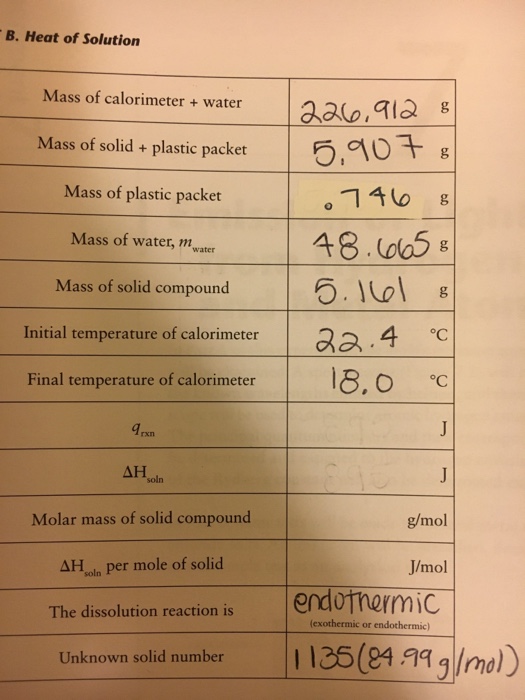 B. Heat of Solution
Mass of calorimeter + water 226.912 g
Mass of solid + plastic packet 5.907 g
Mass of plastic packet .746 g
Mass of water, m water 48.665 g
Mass of solid compound 5.161 g
Initial temperature of calorimeter 22.4 °C
Final temperature of calorimeter 18.0 °C
q rxn J
ΔH soln J
Molar mass of solid compound g/mol
ΔH soln per mole of solid J/mol
The dissolution reaction is endothermic
(exothermic or endothermic)
Unknown solid number 1135 (84.99 g/mol)